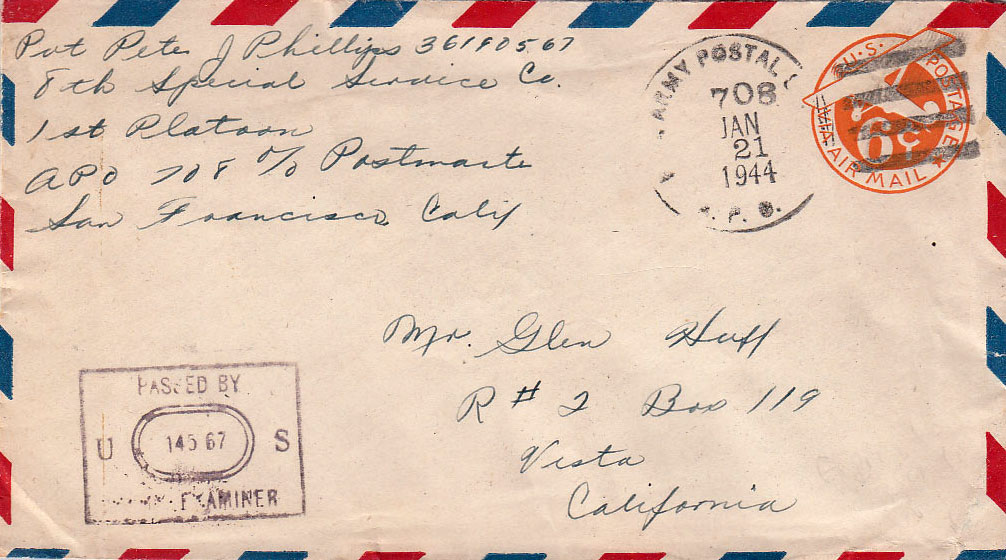 Pvt Peter J Phillips 36180567
8th Special Service Co.
1st Platoon
APO 708 c/o Postmaster
San Francisco Calif
ARMY POSTAL
708
JAN
21
1944
P. O.
U.S. POSTAGE
VIA AIR MAIL
6¢
Mr. Glen Huff
R # 2 Box 119
Vista
California
PASSED BY
U 14567 S
EXAMINER